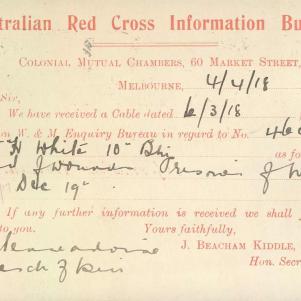 tralian Red Cross Information Bu
COLONIAL MUTUAL CHAMBERS, 60 MARKET STREET,
MELBOURNE, 4/4/18
Sir,
We have received a Cable dated 6/3/18
on W. & M. Enquiry Bureau in regard to No. 46
H White 10th Bn as fo
d of wounds Prisoner of
Dec 19th
If any further information is received we shall
to you. Yours faithfully,
J. BEACHAM KIDDLE,
Hon. Secr